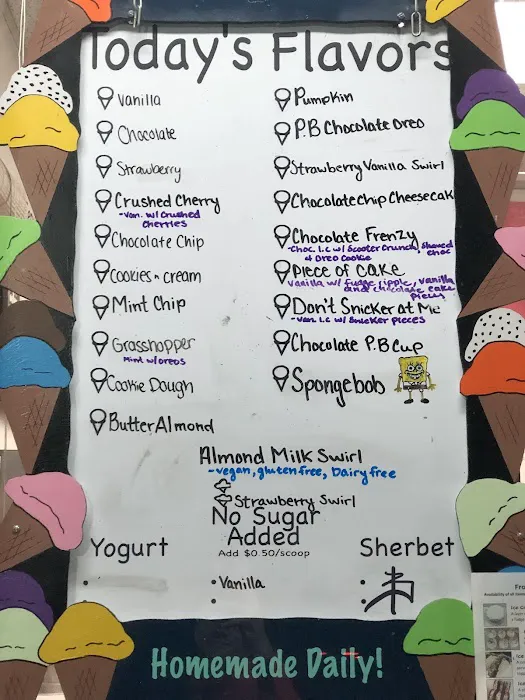 Today's Flavors
Vanilla
Chocolate
Strawberry
Crushed Cherry
-Van. w/ Crushed
Cherries
Chocolate Chip
Cookies n cream
Mint Chip
Grasshopper
Mint w/oreos
Cookie Dough
Butter Almond
Pumpkin
P.B Chocolate Oreo
Strawberry Vanilla Swirl
Chocolatechip Cheesecak
Chocolate Frenzy
-Choc. I.C w/ Scooter Crunch, Shaved
choc
& Oreo Cookie
Piece of cake
Vanilla w/ fudge ripple, vanilla
and chocolate cake
pieces
Don't Snicker at Me
-Van. I.C w/ Snicker pieces
Chocolate P.B Cup
Spongebob
Almond Milk Swirl
-vegan, gluten free, Dairy free
Strawberry Swirl
No Sugar
Added
Add $0.50/scoop
Vanilla
Yogurt
Sherbet
Homemade Daily!